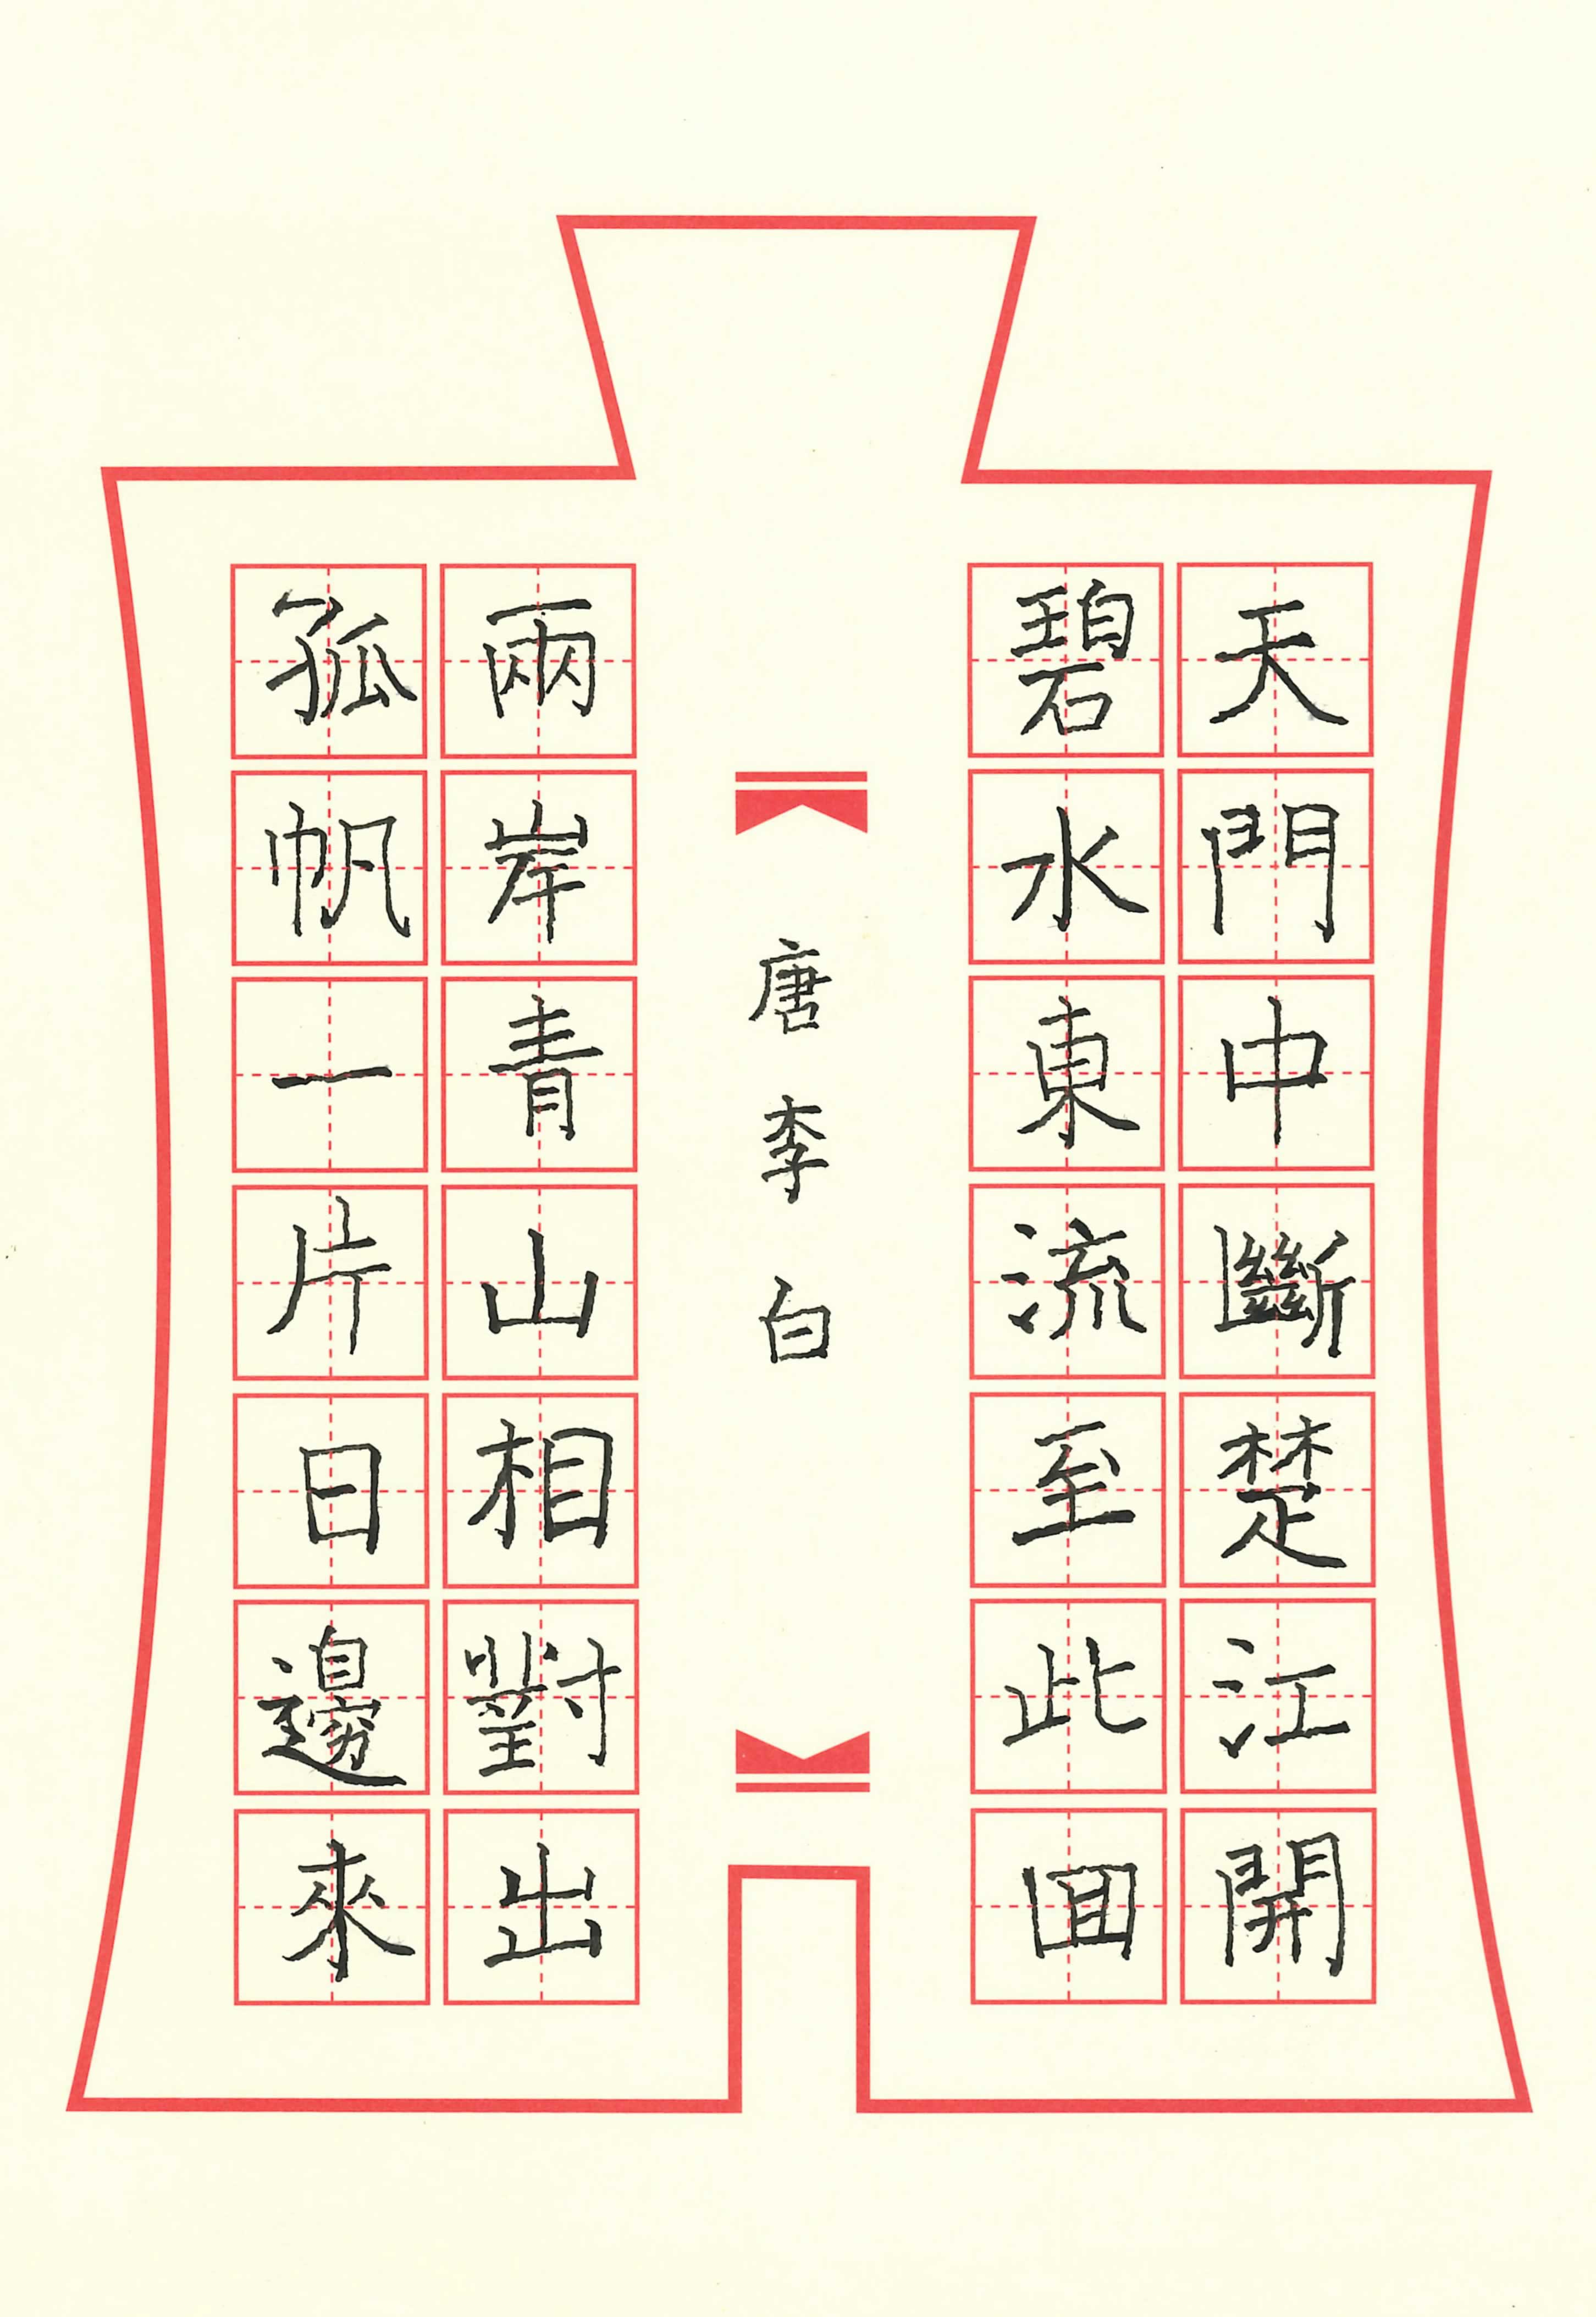 天門中斷楚江開
碧水東流至此回
唐李白
兩岸青山相對出
孤帆一片日邊來